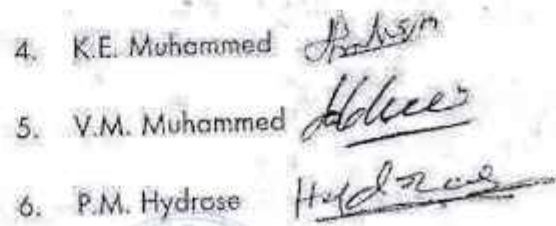 4. K.E. Muhammed
5. V.M. Muhammed
6. P.M. Hydrose Hydrose